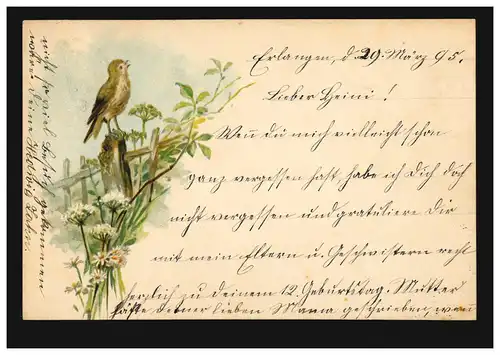 Erlangen, d. 29. März 95.
Lieber Heini!
Wen du mich vielleicht schon
ganz vergessen hast, habe ich Dich doch
nicht vergessen und gratuliere Dir
mit mein Eltern u. Geschwistern recht
herzlich zu deinem 12. Geburtstag. Mutter
hätte deiner lieben Mama geschrieben, wen
nicht so viel Besuch gekommen
wäre. Deine Hedwig